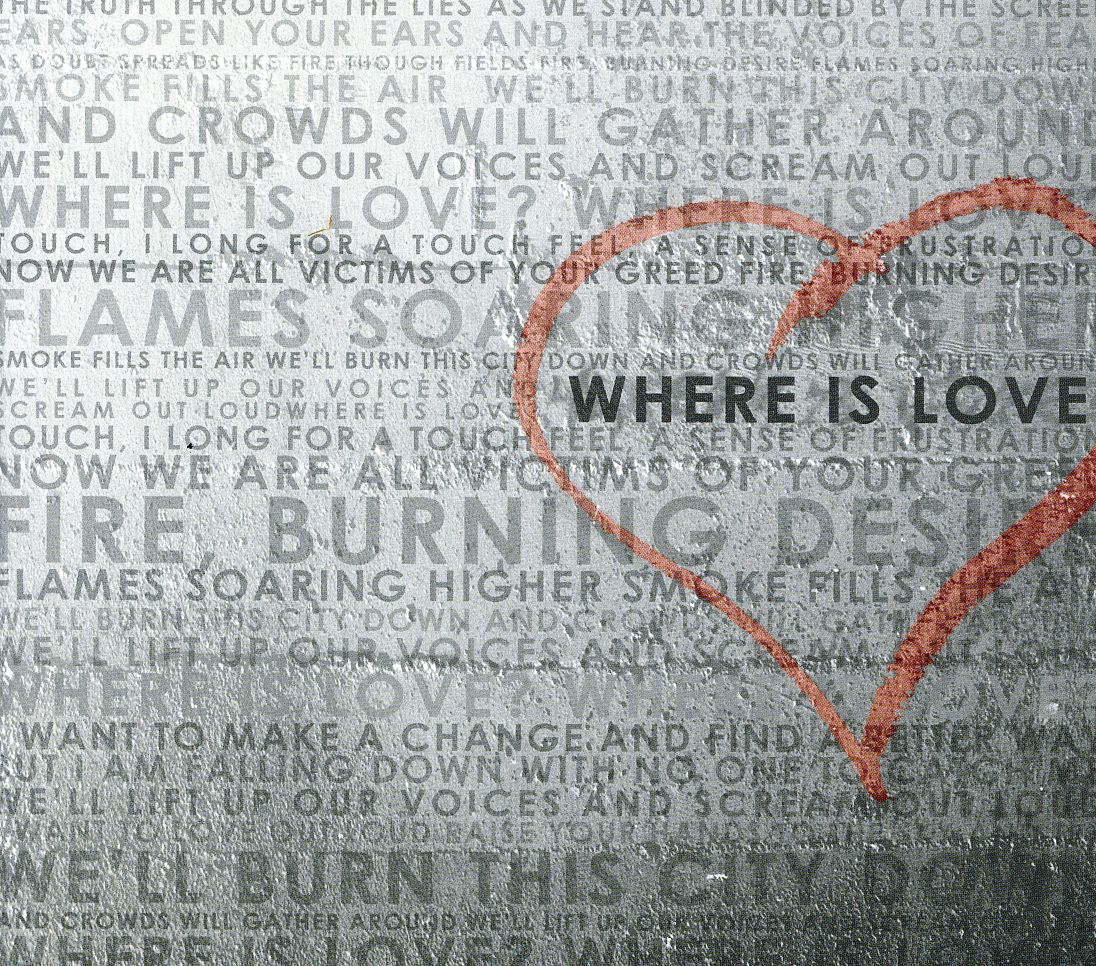 THE TRUTH THROUGH THE LIES AS WE STAND BLINDED BY THE SCREE
EARS OPEN YOUR EARS AND HEAR THE VOICES OF FEA
AS DOUBT SPREADS LIKE FIRE THOUGH FIELDS FIRE, BURNING DESIRE FLAMES SOARING HIGH
SMOKE FILLS THE AIR WE'LL BURN THIS CITY DOW
AND CROWDS WILL GATHER AROUND
WE'LL LIFT UP OUR VOICES AND SCREAM OUT LOU
WHERE IS LOVE? WHERE IS LOV
TOUCH, I LONG FOR A TOUCH FEEL, A SENSE OF FRUSTRATIO
NOW WE ARE ALL VICTIMS OF YOUR GREED FIRE, BURNING DESIR
FLAMES SOARING HIGHE
SMOKE FILLS THE AIR WE'LL BURN THIS CITY DOWN AND CROWDS WILL GATHER AROUN
WE'LL LIFT UP OUR VOICES AND
WHERE IS LOVE
SCREAM OUT LOUDWHERE IS LOVE
TOUCH, I LONG FOR A TOUCH FEEL, A SENSE OF FRUSTRATION
NOW WE ARE ALL VICTIMS OF YOUR GREE
FIRE, BURNING DESI
FLAMES SOARING HIGHER SMOKE FILLS THE A
WE'LL BURN THIS CITY DOWN AND CROWDS WILL GAT
WE'LL LIFT UP OUR VOICES AND SCREAM OUT LOU
WHERE IS LOVE? WHERE IS LOVE
WANT TO MAKE A CHANGE AND FIND A BETTER WA
UT I AM FALLING DOWN WITH NO ONE TO CATCH M
WE'LL LIFT UP OUR VOICES AND SCREAM OUT LOU
WANT TO LOVE OUT LOUD RAISE YOUR HANDS TO THE
WE'LL BURN THIS CITY DOW
AND CROWDS WILL GATHER AROUND WE'LL LIFT UP OUR VOICES
WHERE IS LOVE? WHERE IS LO